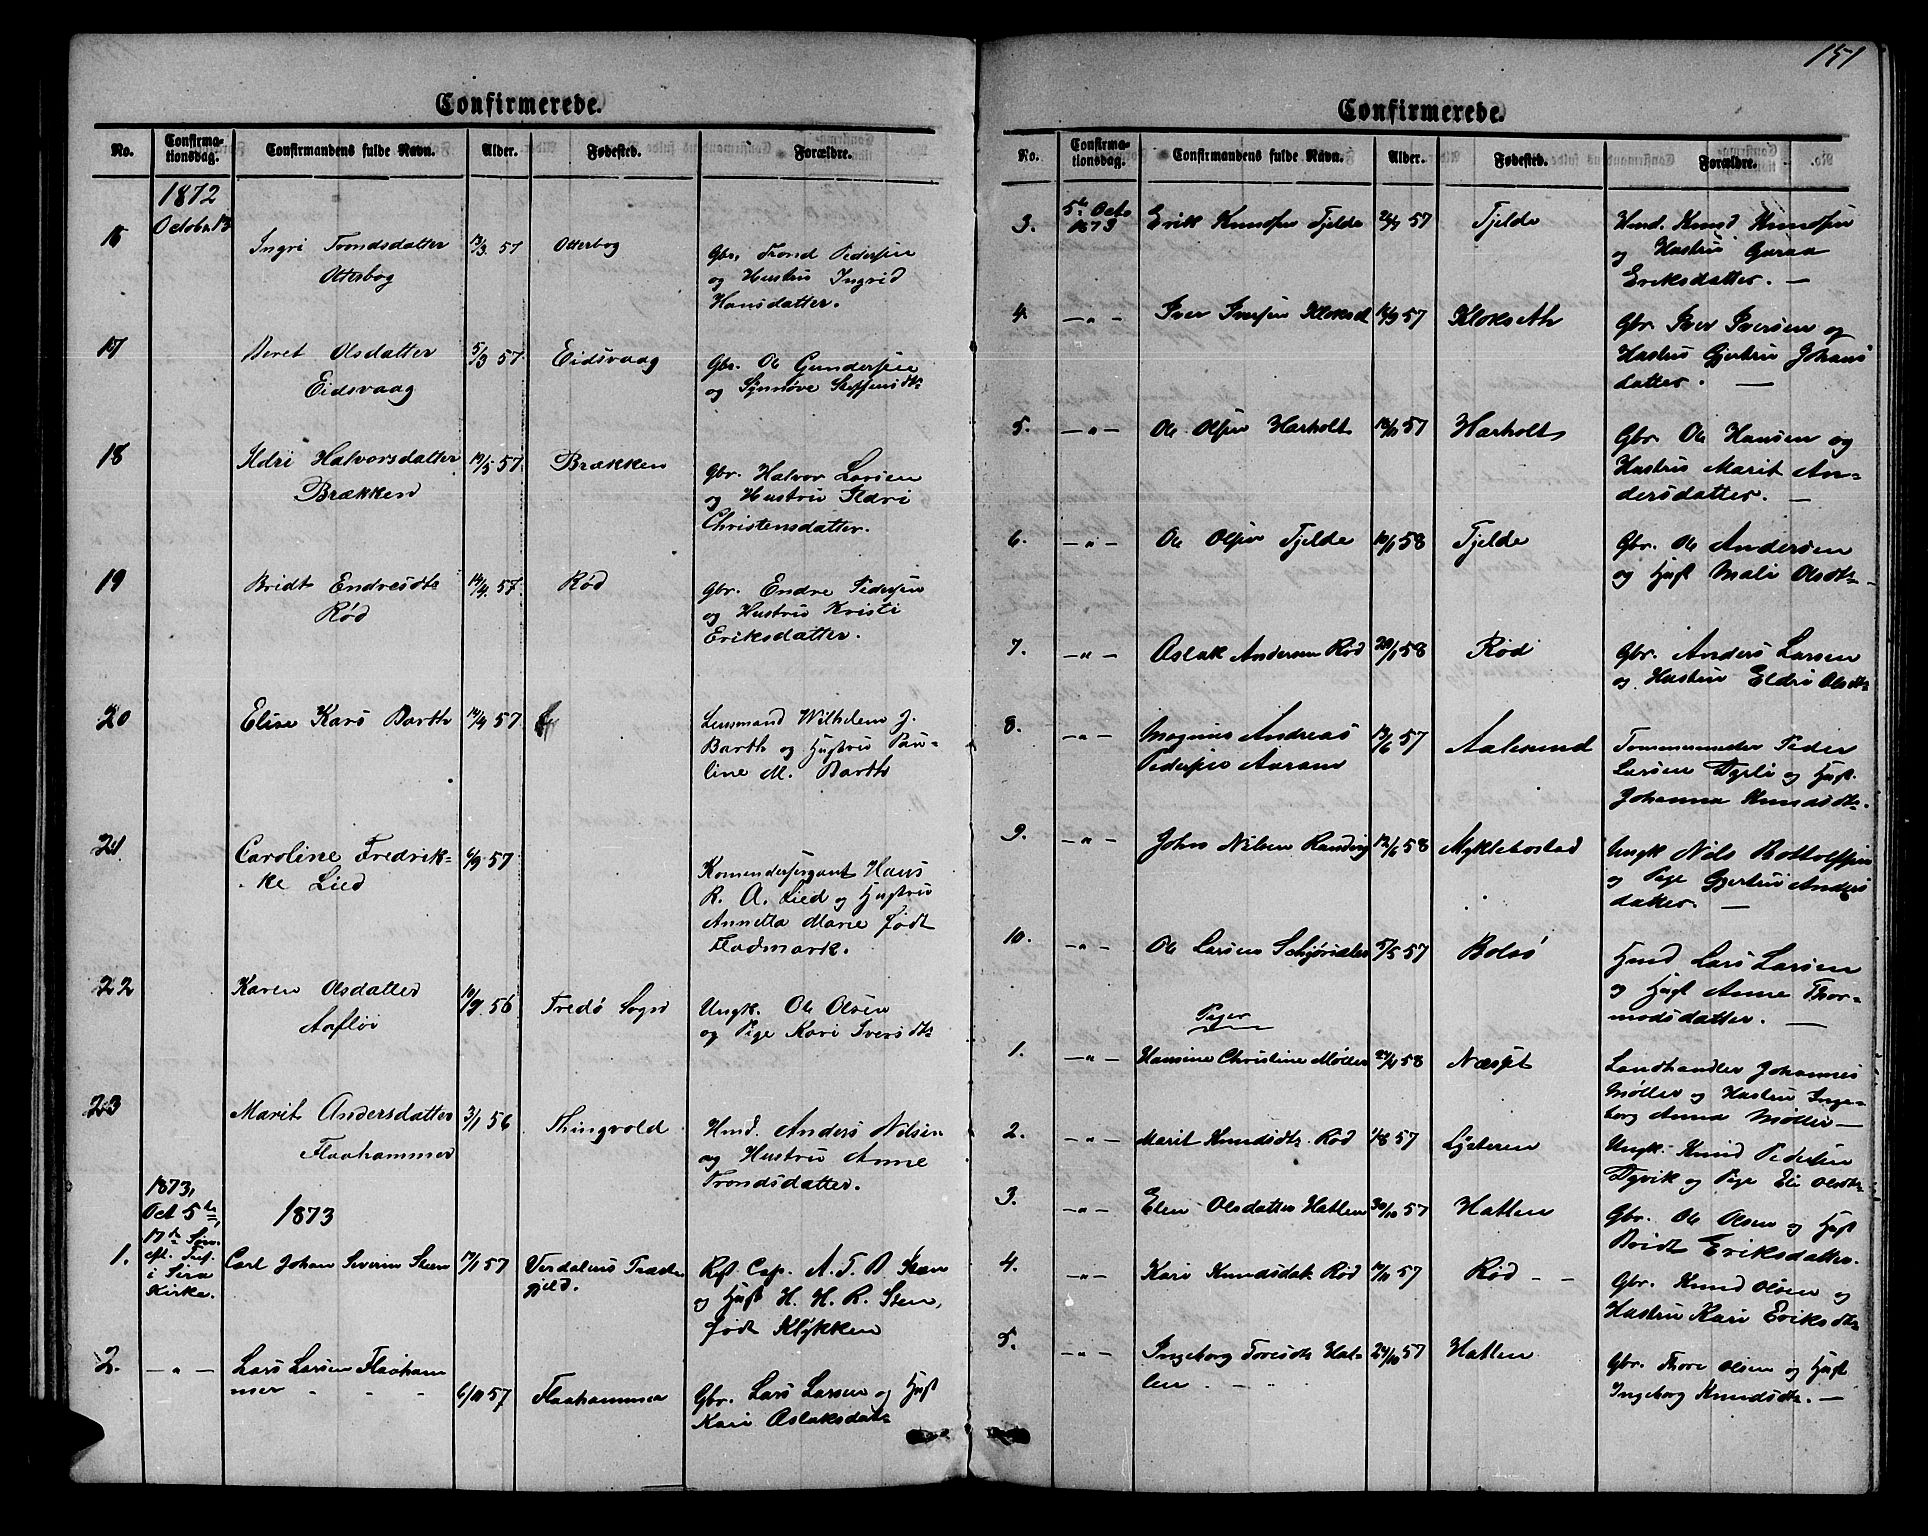 151
Confirmerede.
No. Confirma-tionsdag. Confirmandens fulde Navn. Alder. Fødested. Forældre.
1872
Octobr. 13
16 Ingri Trondsdatter 13/3 57 Otterbog Gbr. Trond Pedersen
Otterbog og Hustru Ingrid
Hansdatter.
17 Beret Olsdatter 5/3 57 Eidsvaag Gbr. Ole Gundersen
Eidsvaag og Synnøve Steffensdtr
18 Ildri Halvorsdatter 19/5 57 Brækken Gbr. Halvor Larsen
Brækken og Hustru Ildri
Christensdatter.
19 Bridt Endresdtr 14/4 57 Rød Gbr. Endre Pedersen
Rød og Hustru Kristi
Eriksdatter.
20 Elise Kars Barth 14/4 57 Lensmand Wilhelm J.
Barth og Hustru Pau-
line M. Barth
21. Caroline Fredrik- 6/9 57 Komandersergeant Hans
ke Lied R. A. Lied og Hustru
Annetta Marie født
Fladmark.
22 Karen Olsdatter 10/9 56 Tredø Sogn Ungk. Ole Olsen
og Pige Kari Iversdtr
23 Marit Andersdatter 3/1 56 Thingvold Hmd. Anders Nilsen
Flaahammer og Hustru Anne
Trondsdatter.
1873,
Oct 5te, 1873
17de Søn.
eft. Tref.
i Sira
Kirke.
1. Carl Johan Severin Steen 17/1 57 Verdalens Præste- Rst. Cap. A. T. D. Steen
gjeld. og Hust. H. H. R. Steen,
født Klykken
2. — " — Lars Larsen Flaaham
mer 6/10 57 Flaahammer Gbr. Lars Larsen og Hust
Kari Aslaksdatr
Confirmerede.
No. Confirma-tionsdag. Confirmandens fulde Navn. Alder. Fødested. Forældre.
3. 5te Octo 1873 Erik Knudsen Tjelde 57 Tjelde Hmd. Knud Knudsen
og Hustru Guraa
Eriksdatter. —
4. — " — Iver Iversen Klokset 57 Klokseth Gbr. Iver Iversen og
Hustru Gjertru Johans
datter. —
5. — " — Ole Olsen Harholt 57 Harholt Gbr. Ole Hansen og
Hustru Marit An-
dersdatter. —
6. — " — Ole Olsen Tjelde 10/1 58 Tjelde Gbr. Ole Andersen
og Hust Mali Olsdtr
7. — " — Aslak Andersen Rød 20/1 58 Rød Gbr. Anders Larsen
og Hustru Eldri Olsdtr
8. — " — Magnus Andreas 13/6 57 Aalesund Tømmermester Peder
Pedersen Aaram Larsen og Hust.
Johanna Knudsdtr.
9. — " — Johs Nilsen Randvig 12/6 58 Myklebostad Ungk Nils Bottolfsen
og Pige Gjertru Anders
datter. —
10. — " — Ole Larsen 5/5 57 Bolsø Hmd Lars Larsen
og Hust Anne Thor-
modsdatter. —
Piger
1. — " — Hansine Christine Møller 58 Næsset Landhandler Johannes
Møller og Hustru Inge-
borg Anna Møller —
2. — " — Marit Knudsdtr. Rød 57 Ljøteren Ungk. Knud Pedersen
Dyvik og Pige Eli Olsdtr
3. — " — Elen Olsdatter Hatlen 30/10 57 Hatlen Gbr. Ole Olsen og Hust
Bridt Eriksdatter.
4. — " — Kari Knudsdatr Rød 57 Rød — — Gbr. Knud Olsen og
Hustru Kari Eriksdtr
5. — " — Ingeborg Toresdtr Hat- 24/10 57 Hatlen Gbr. Thore Olsen og Hust
len . — Ingeborg Knudsdtr. —